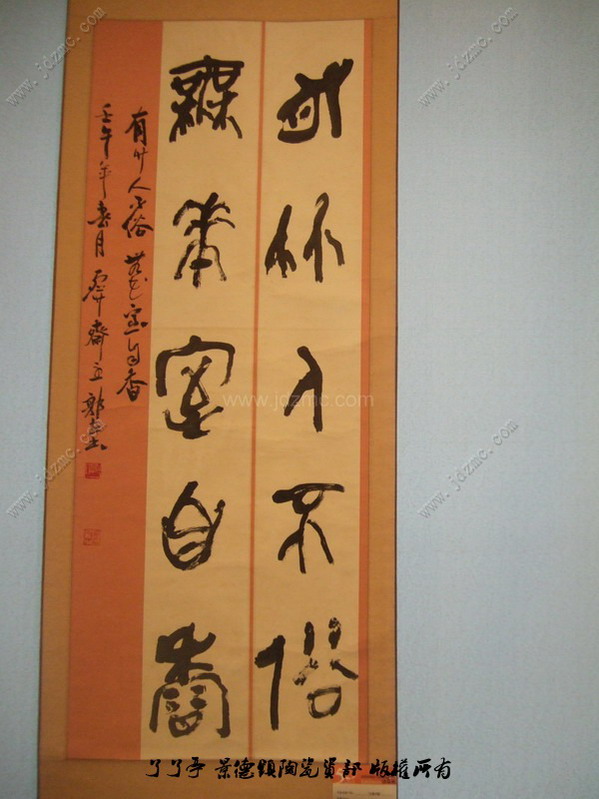 有竹人不俗
無華室自香
有竹人不俗 無花室自香
壬午年春月 齋立 郭
www.jdzmc.com
www.jdzmc.com
www.jdzmc.com
www.jdzmc.com
www.jdzmc.com
了了亭 景德鎮陶瓷貿部 版權所有